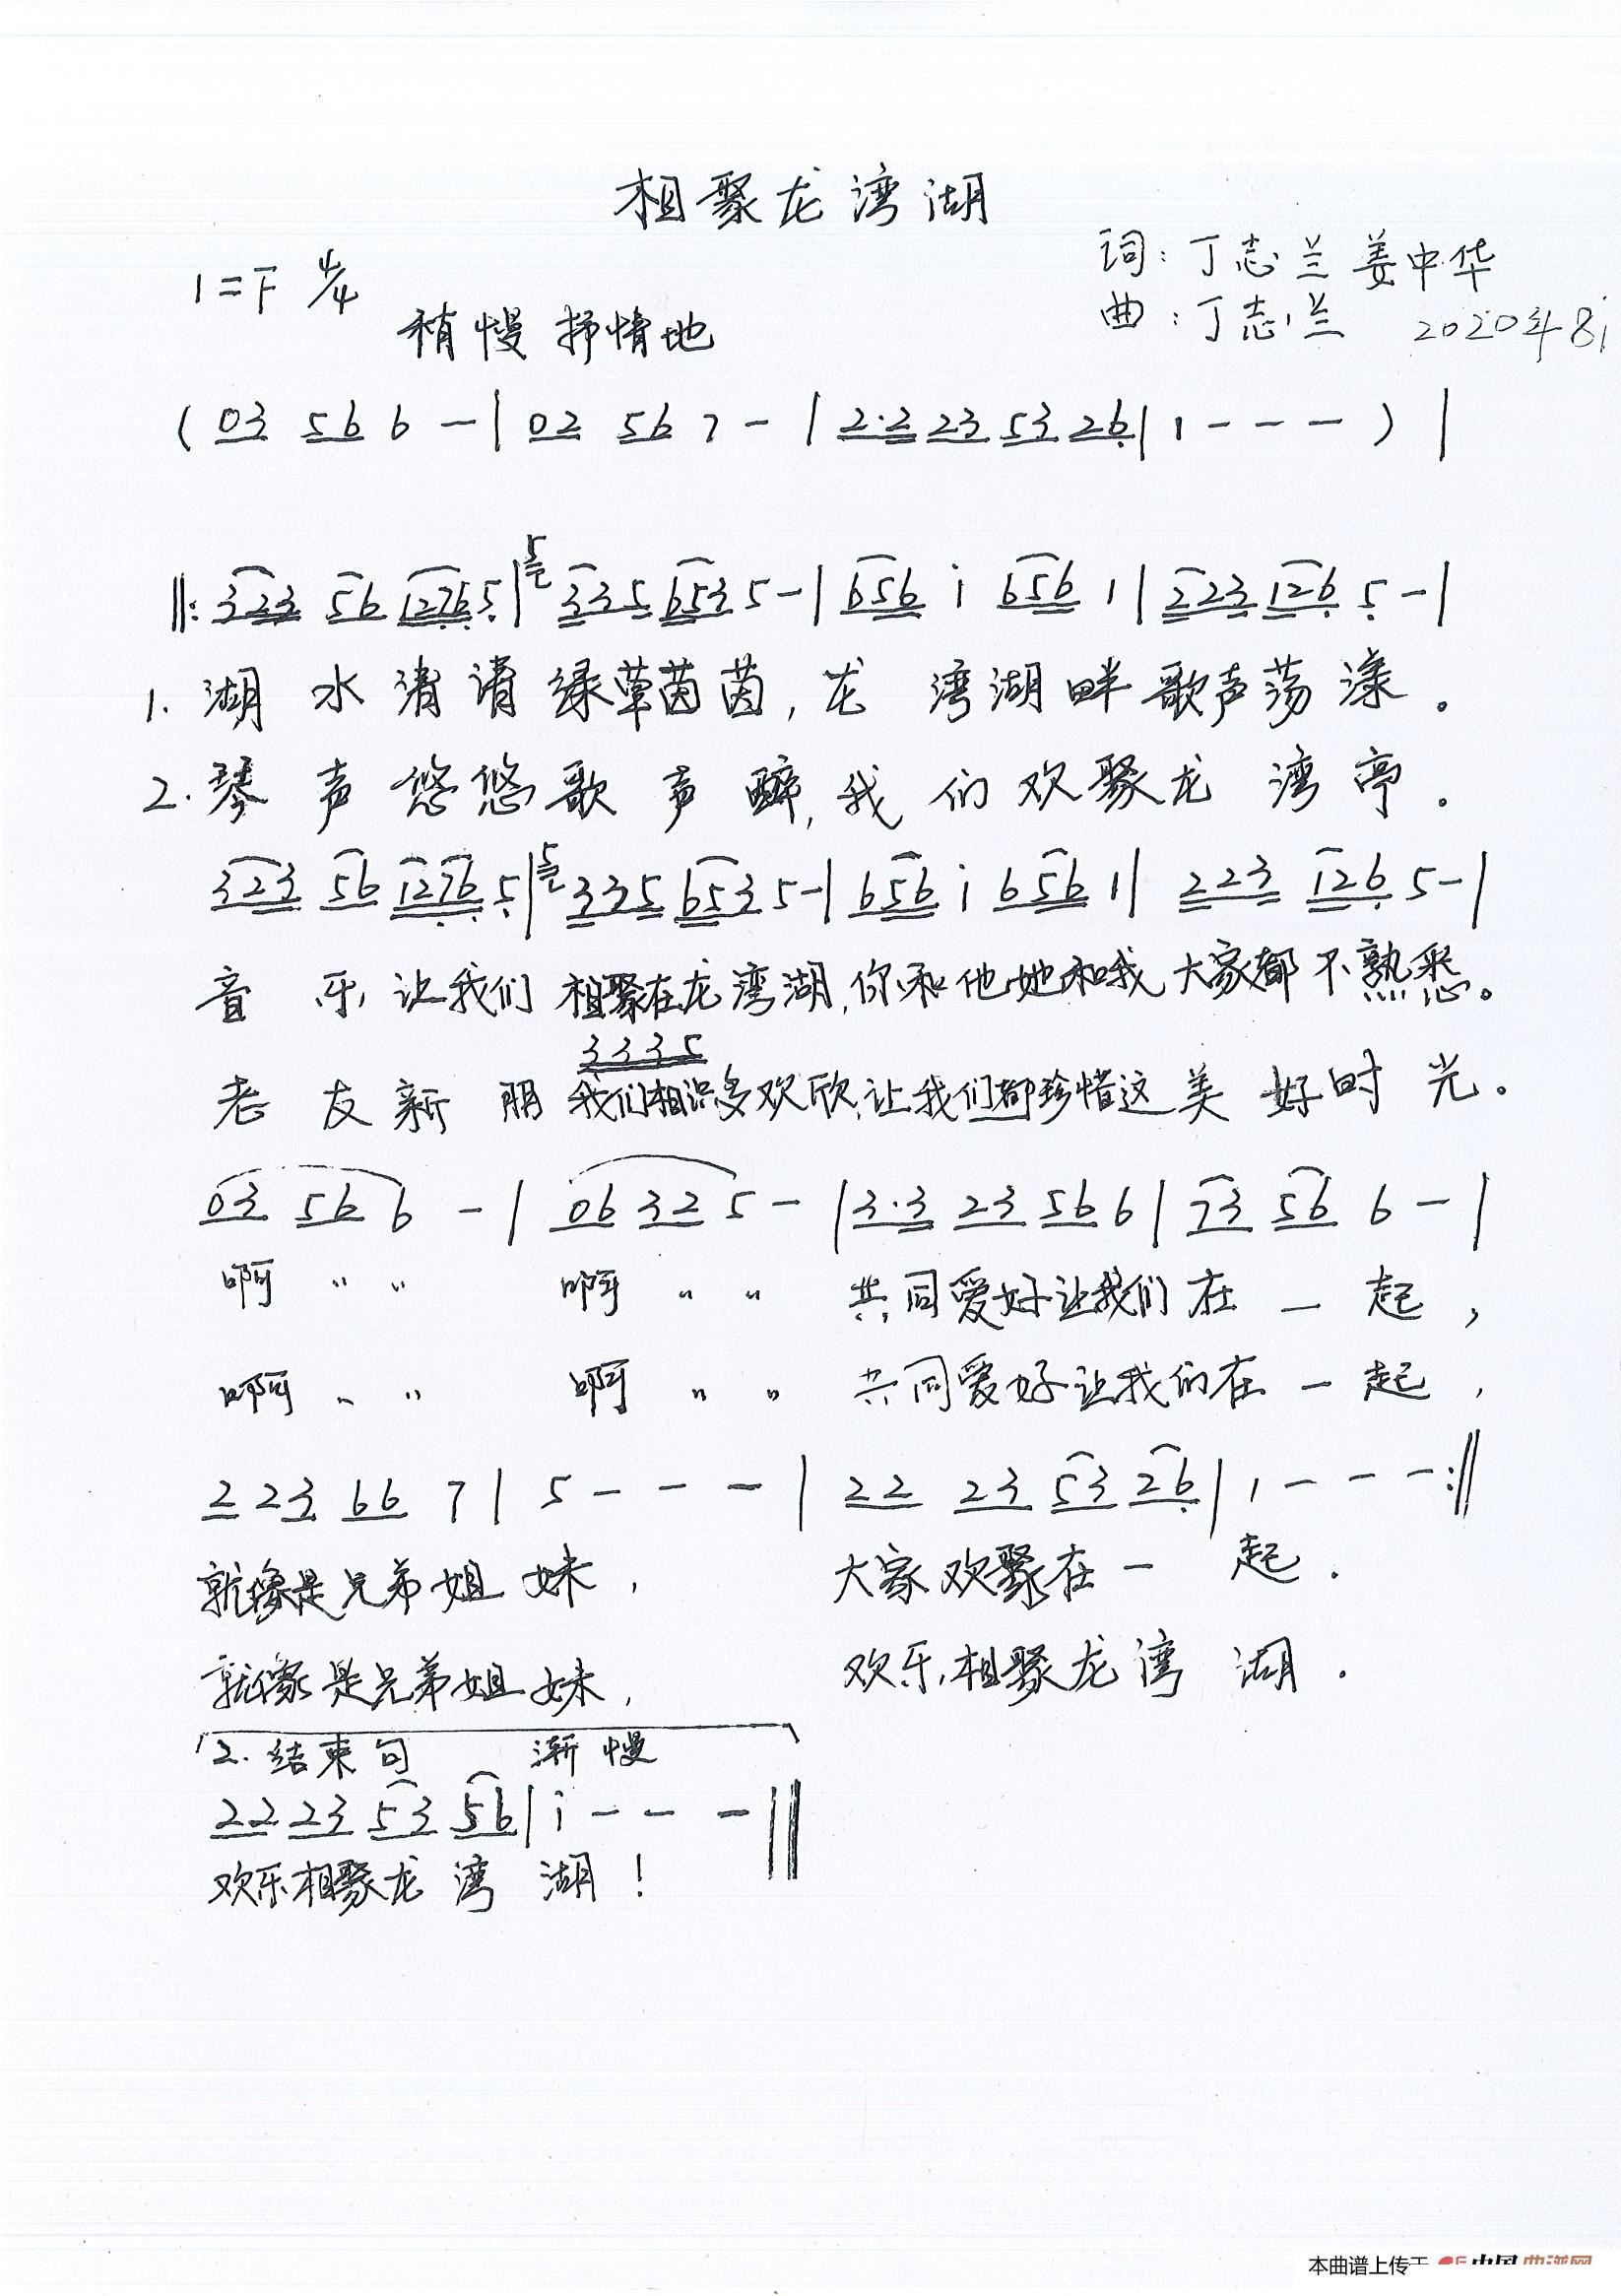 相聚龙湾湖
词：丁志兰 姜中华
1=F 4/4
曲：丁志兰 2020年8
稍慢 抒情地
( 03 56 6 - | 02 56 7 - | 2·2 23 53 26 | 1 - - - ) |
5
‖: 323 56 1276 5 | 335 653 5 - | 656 i 656 1 | 223 126 5 - |
1. 湖水清清绿草茵茵，龙湾湖畔歌声荡漾。
2. 琴声悠悠歌声醉，我们欢聚龙湾亭。
5
323 56 1276 5 | 335 653 5 - | 656 i 656 1 | 223 126 5 - |
音乐让我们相聚在龙湾湖，你和他她和我大家都不熟悉。
3335
老友新朋我们相识多欢欣，让我们都珍惜这美好时光。
03 56 6 - | 06 32 5 - | 3·3 23 56 6 | 73 56 6 - |
啊 〃 〃 啊 〃 〃 共同爱好让我们在一起，
啊 〃 〃 啊 〃 〃 共同爱好让我们在一起，
2 23 66 7 | 5 - - - | 22 23 53 26 | 1 - - - :‖
就像是兄弟姐妹， 大家欢聚在一起．
就像是兄弟姐妹， 欢乐相聚龙湾湖．
2. 结束句 渐慢
22 23 53 56 | i - - - ‖
欢乐相聚龙湾湖！
本曲谱上传于 中国曲谱网